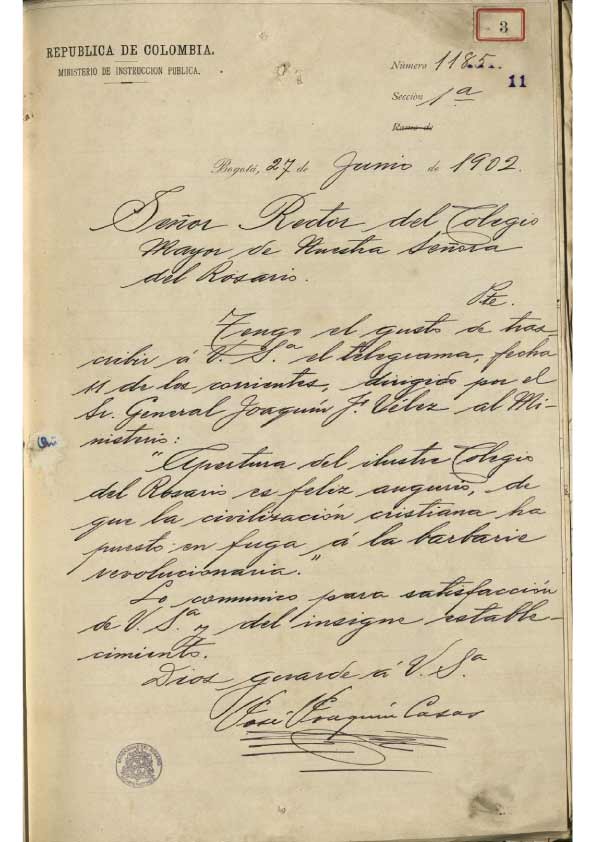 3
REPUBLICA DE COLOMBIA.
MINISTERIO DE INSTRUCCION PUBLICA.
Número 1185
11
Sección 1ª
Ramo de
Bogotá, 27 de Junio de 1902.
Señor Rector del Colegio
Mayor de Nuestra Señora
del Rosario.
Pte.
Tengo el gusto de tras
cribir á V. Sª el telegrama, fecha
11 de los corrientes, dirigido por el
Sr. General Joaquín F. Vélez al Mi-
nisterio:
"Apertura del ilustre Colegio
del Rosario es feliz augurio, de
que la civilización cristiana ha
puesto en fuga á la barbarie
revolucionaria."
Lo comunico para satisfacción
de V. Sª y del insigne estable-
cimiento.
Dios guarde á V. Sª
José Joaquín Casas